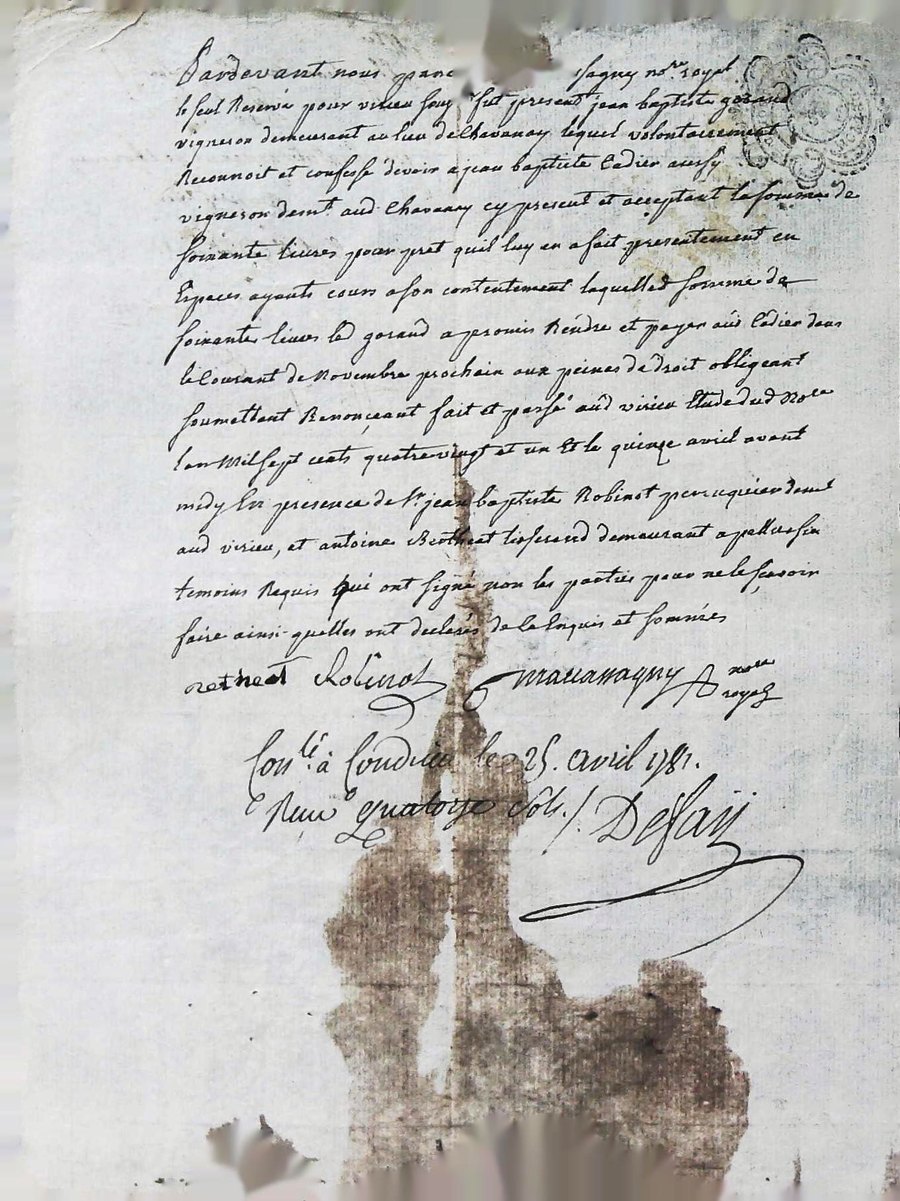 Pardevant nous sagny no.re royal
le seul Reservé pour virieu soug fut present jean baptiste gorand
vigneron demeurant au lieu de Chavanay lequel volontairement
Reconnoit et confesse devoir a jean baptiste Cadier aussy
vigneron dem.t aud. Chavanay cy present et acceptant la somme de
soixante livres pour pret quil luy en a fait presentement en
Especes ayants cours a son contentement laquelled somme de
soixante livres led gorand a promis Rendre et payer aud Cadier dans
le Courant de Novembre prochain aux peines de droit obligeant
soumettant Renonceant fait et passé aud virieu Etude dud No.re
lan Mil sept cents quatrevingt et un Et le quinze avril avant
midy En presence de S.r jean baptiste Robinot perruquier dem.t
aud virieu, et antoine Betheat tisserand demeurant a pelussin
temoins Requis qui ont signé non les parties pour ne le sçavoir
faire ainsi quelles ont declarés de ce Enquis et sommées
Robinot no.re
royal
Con.lé à Condrieu le 25. avril 1781.
Recu quatorze sols. / Defaÿ